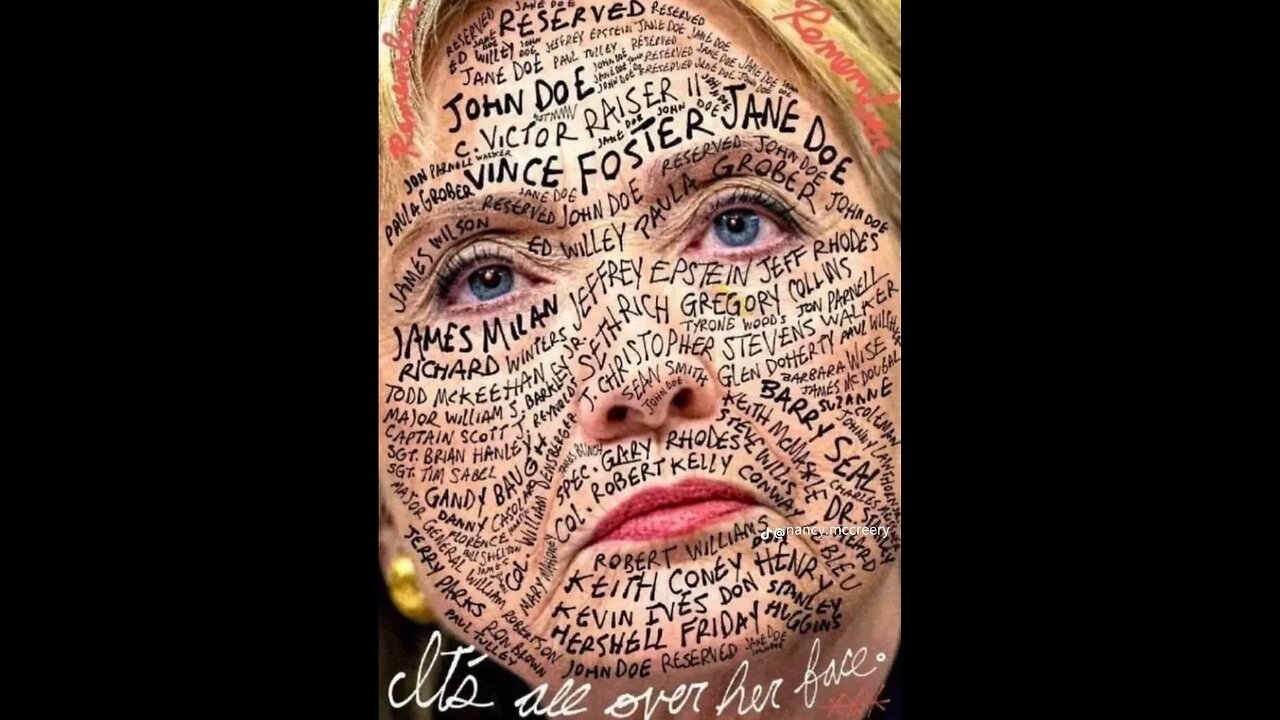 Remember
Remember
JANE DOE
RESERVED
RESERVED
RESERVED
ED WILLEY
JEFFREY EPSTEIN JANE DOE
JANE DOE PAUL TULLEY RESERVED
JOHN DOE
C. VICTOR RAISER II
JANE DOE
VINCE FOSTER
JON PARNELL WALKER
PAULA GROBER
JANE DOE
RESERVED JOHN DOE
RESERVED JOHN DOE
JOHN DOE
JAMES WILSON
ED WILLEY PAULA GROBER
JEFFREY EPSTEIN JEFF RHODES
JAMES MILAN
SETH RICH GREGORY COLLINS
TYRONE WOODS JON PARNELL WALKER
RICHARD WINTERS
J. CHRISTOPHER STEVENS
TODD McKEEHAN
SEAN SMITH
JOHN DOE
GLEN DOHERTY PAUL WILCHER
MAJOR WILLIAM S. BARKLEY JR.
BARBARA WISE
JAMES McDOUGAL
CAPTAIN SCOTT J. REYNOLDS
BARRY SEAL
SUZANNE COLEMAN
SGT. BRIAN HANLEY
KEITH McMASKLE
JOHNNY LAWHORN
SGT. TIM SABEL
JAMES BUNCH
SPEC. GARY RHODES
STEVE WILLIS
GANDY BAUGH
COL. ROBERT KELLY
CONWAY
DR. STANLEY HEARD
DANNY CASOLARO
COL. WILLIAM DENSBERGER
FLORENCE MARTIN
PAUL SHELTON
MAJOR GENERAL WILLIAM ROBERTSON
MARY MAHONEY
@nancy.mccreery
ROBERT WILLIAMS
JERRY PARKS
KEITH CONEY HENRY
BLEU
KEVIN IVES DON
STANLEY HUGGINS
PAUL TULLEY
RON BROWN
HERSHELL FRIDAY
JOHN DOE RESERVED JANE DOE
It's all over her face.